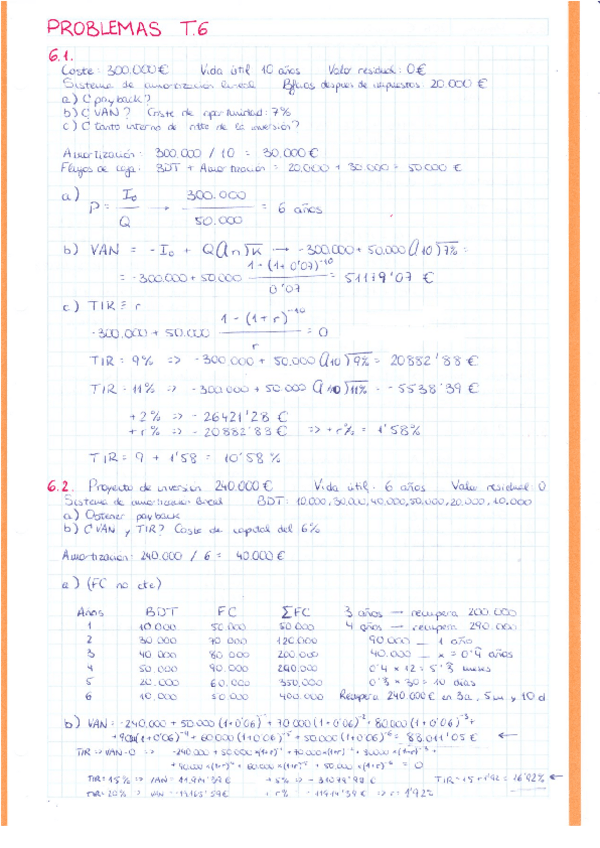 PROBLEMAS T.6
6.1.
Coste: 300.000 € Vida útil 10 años Valor residual: 0 €
Sistema de amortización lineal Bficos después de impuestos: 20.000 €
a) ¿ payback?
b) ¿ VAN? Coste de oportunidad: 7%
c) ¿ tanto interno de rtto de la inversión?
Amortización: 300.000 / 10 = 30.000 €
Flujos de caja: BDT + Amortización = 20.000 + 30.000 = 50.000 €
a) P = I₀ / Q → 300.000 / 50.000 = 6 años
b) VAN = - I₀ + Q a n k → - 300.000 + 50.000 a 10 7% =
= - 300.000 + 50.000 1 - (1 + 0'07)⁻¹⁰ / 0'07 = 51179'07 €
c) TIR = r
- 300.000 + 50.000 1 - (1 + r)⁻¹⁰ / r = 0
TIR = 9% => - 300.000 + 50.000 a 10 9% = 20882'88 €
TIR = 11% => - 300.000 + 50.000 a 10 11% = - 5538'39 €
+ 2% => - 26421'28 €
+ r% => - 20882'88 € => + r% = 1'58%
TIR = 9 + 1'58 = 10'58 %
6.2. Proyecto de inversión 240.000 € Vida útil: 6 años Valor residual: 0
Sistema de amortización lineal BDT: 10.000, 30.000, 40.000, 50.000, 20.000, 10.000
a) Obtener payback
b) ¿ VAN y TIR? Coste de capital del 6%
Amortización: 240.000 / 6 = 40.000 €
a) (FC no cte)
Años BDT FC ΣFC 3 años — recupera 200.000
1 10.000 50.000 50.000 4 años — recupera 290.000
2 30.000 70.000 120.000 90.000 — 1 año
3 40.000 80.000 200.000 40.000 — x = 0'4 años
4 50.000 90.000 290.000 0'4 x 12 = 5'3 meses
5 20.000 60.000 350.000 0'3 x 30 = 10 días
6 10.000 50.000 400.000 Recupera 240.000 € en 3a, 5m y 10 d
b) VAN = - 240.000 + 50.000 (1+0'06)⁻¹ + 70.000 (1+0'06)⁻² + 80.000 (1+0'06)⁻³ +
+ 90.000 (1+0'06)⁻⁴ + 60.000 (1+0'06)⁻⁵ + 50.000 (1+0'06)⁻⁶ = 88.011'05 € ←
TIR => VAN=0 => - 240.000 + 50.000 (1+r)⁻¹ + 70.000 (1+r)⁻² + 80.000 (1+r)⁻³ +
+ 90.000 (1+r)⁻⁴ + 60.000 (1+r)⁻⁵ + 50.000 (1+r)⁻⁶ = 0
TIR = 15% => VAN = + 5% => TIR = 15 + 1'92 = 16'92% ←
TIR = 20% => VAN = + r% => => r = 1'92%